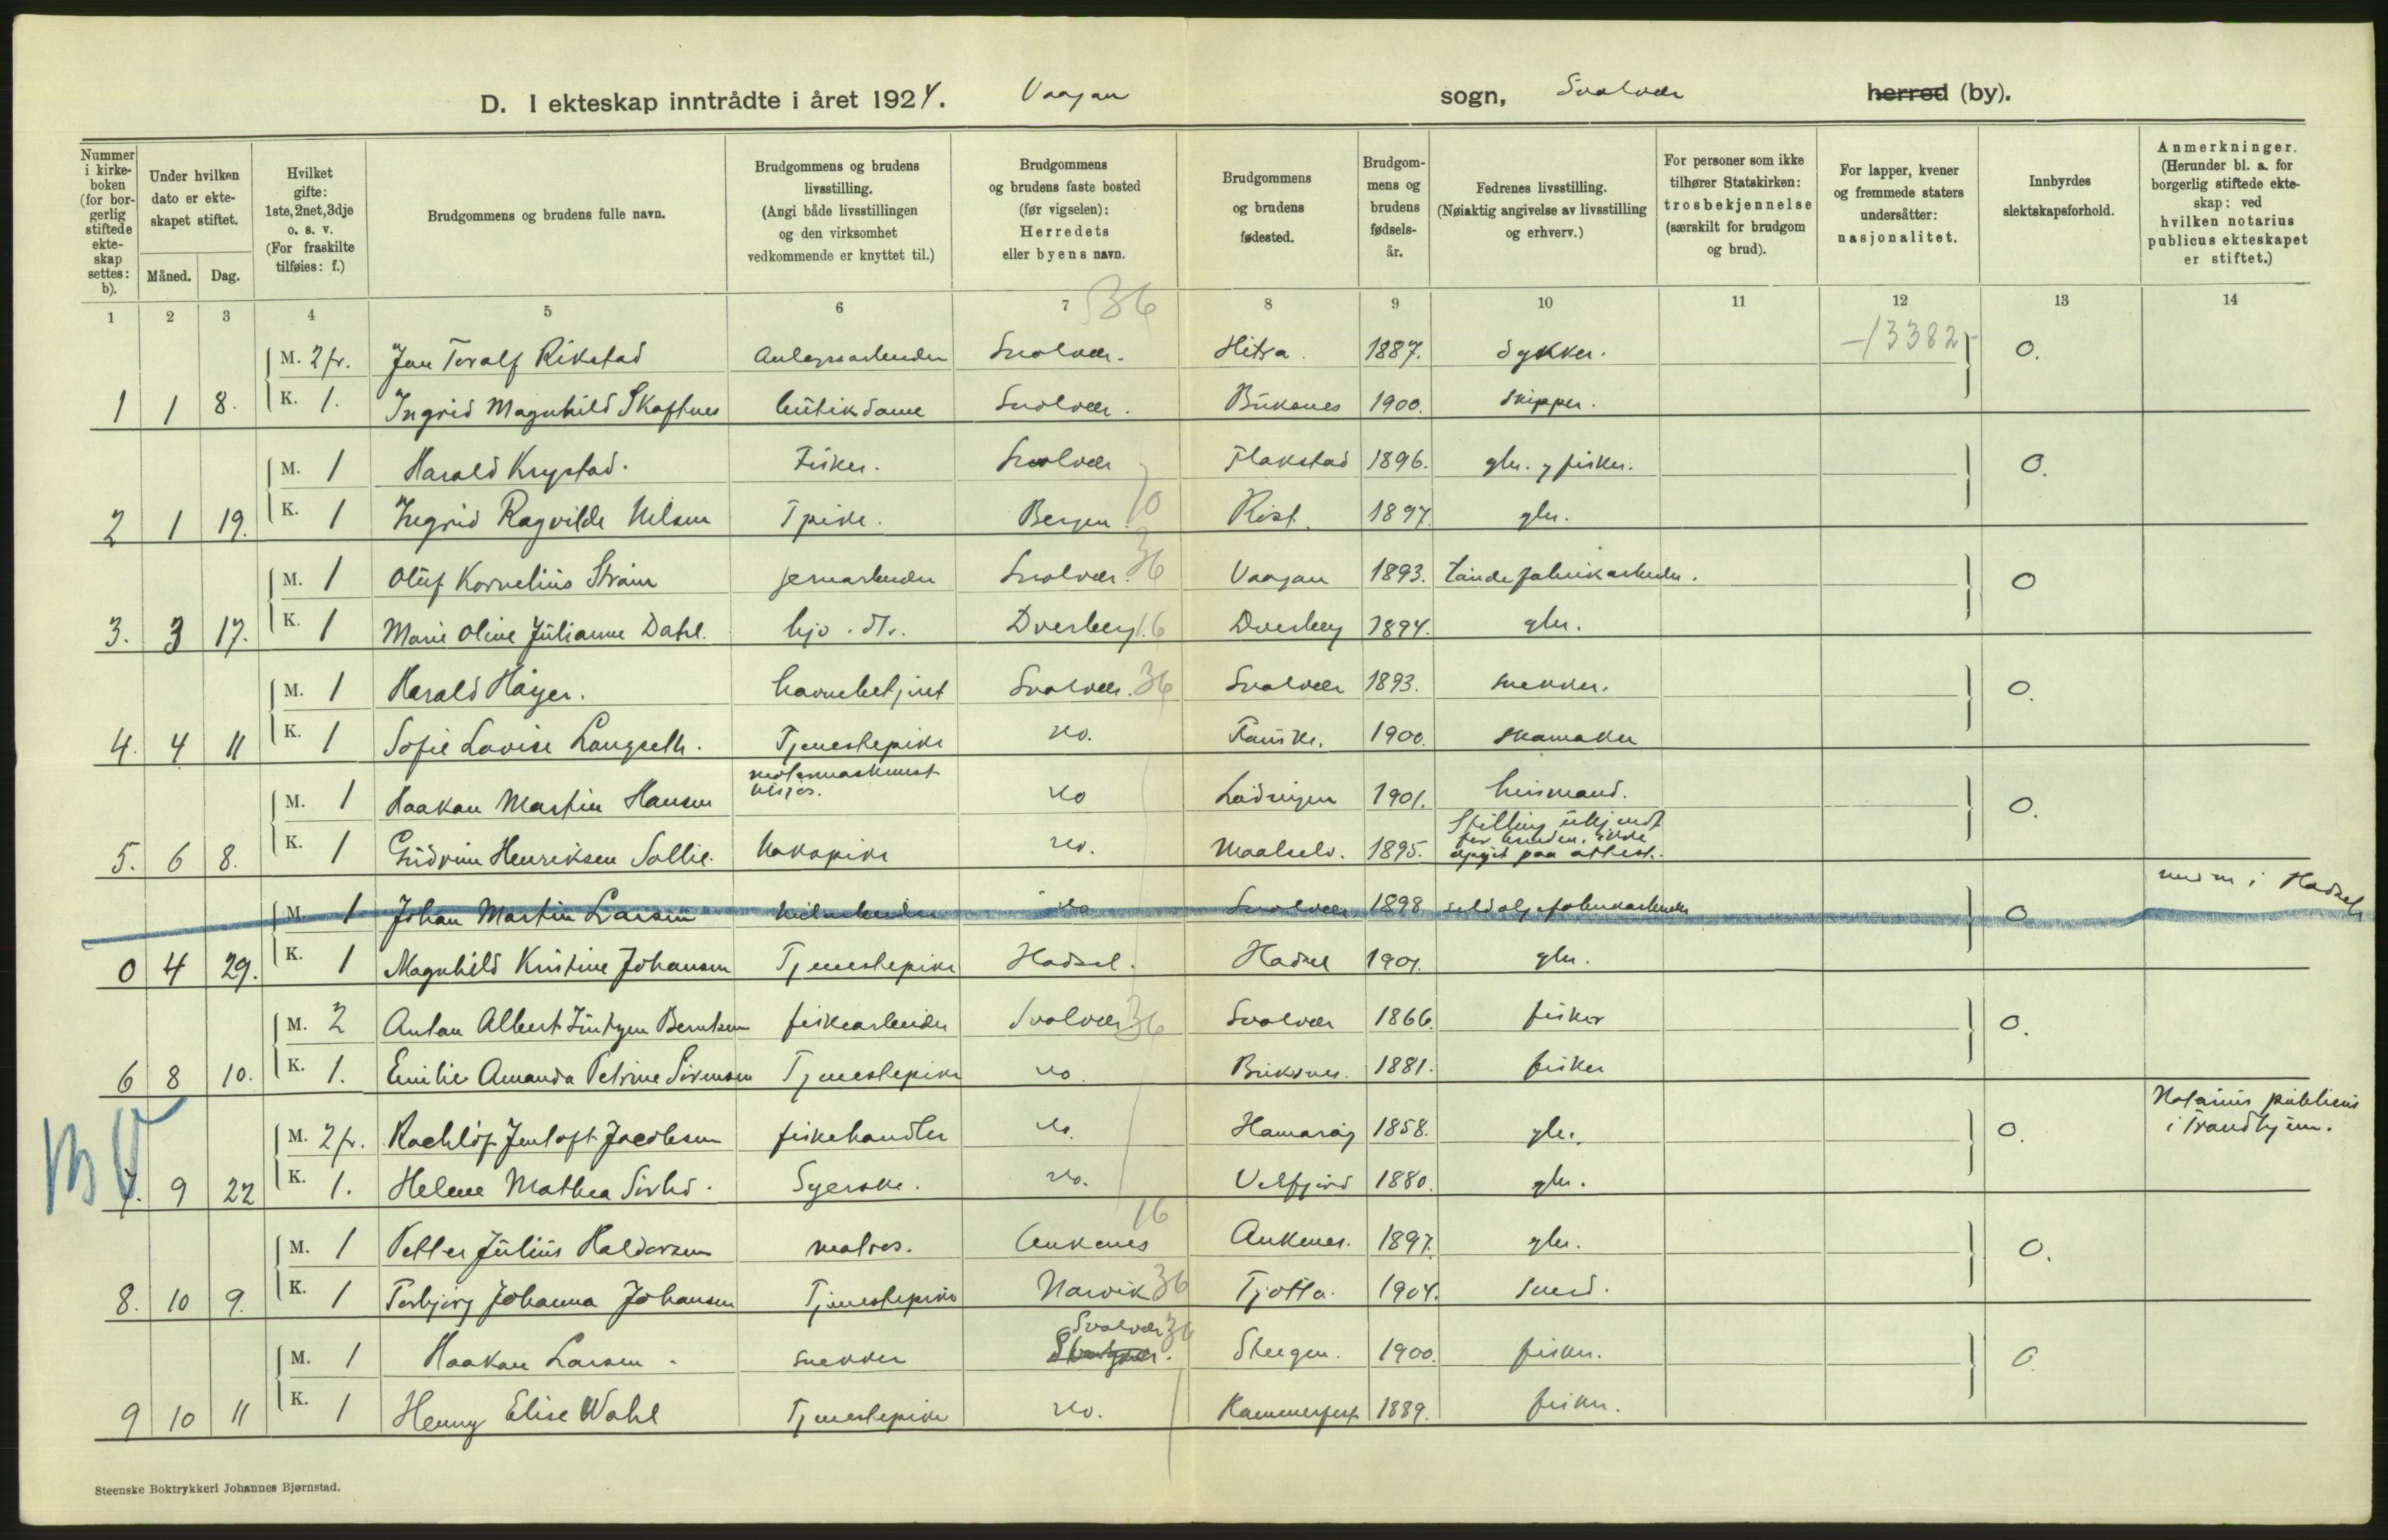 D. I ekteskap inntrådte i året 1924. Vaagan sogn, Svolvær herred (by).
Nummer i kirkeboken (for borgerlig stiftede ekteskap settes: b).
Under hvilken dato er ekteskapet stiftet.
Måned. Dag.
Hvilket gifte: 1ste, 2net, 3dje o. s. v. (For fraskilte tilføies: f.)
Brudgommens og brudens fulle navn.
Brudgommens og brudens livsstilling. (Angi både livsstillingen og den virksomhet vedkommende er knyttet til.)
Brudgommens og brudens faste bosted (før vigselen): Herredets eller byens navn.
Brudgommens og brudens fødested.
Brudgommens og brudens fødselsår.
Fedrenes livsstilling. (Nøiaktig angivelse av livsstilling og erhverv.)
For personer som ikke tilhører Statskirken: trosbekjennelse (særskilt for brudgom og brud).
For lapper, kvener og fremmede staters undersåtter: nasjonalitet.
Innbyrdes slektskapsforhold.
Anmerkninger. (Herunder bl. a. for borgerlig stiftede ekteskap: ved hvilken notarius publicus ekteskapet er stiftet.)
1 2 3 4 5 6 7 36 8 9 10 11 12 13 14
M. 2 fr. Jan Toralf Rikstad Anlegsarbeider Svolvær. Hitra. 1887. dykker. 13382 0.
1 1 8. K. 1. Ingrid Magnhild Skaftnes butikdame Svolvær. Buksnes 1900. skipper.
M. 1 Harald Krystad. Fisker. Svolvær Flakstad 1896. gbr. og fisker. 0.
2 1 19. K. 1 Ingrid Ragvilde Nilsen Tpike. Bergen. 70 Røst. 1897. gbr.
M. 1 Oluf Kornelius Strøm jernarbeider Svolvær. 36 Vaagan 1893. Tøndefabrikarbeider. 0
3. 3 17. K. 1 Marie Oline Julianne Dahl. hjv. dtr. Dverberg 16 Dverberg 1894. gbr.
M. 1 Harald Høyer. havnebetjent Svolvær. 36 Svolvær 1893. snekker. 0.
4. 4 11 K. 1 Sofie Lovise Langseth. Tjenestepike do. Fauske. 1900. skomaker
M. 1 Haakon Martin Hansen motormaskinist do Lødingen 1901. husmand. 0.
5. 6 8. K. 1 Gudrun Henriksen Sollie. Kokkepike do. Maalselv. 1895. Stilling ukjendt for bruden. ikke opgit paa attest.
M. 1 Johan Martin Larsen do Svolvær 1898. sildoljefabrikarbeider 0 Hadsel
0 4 29. K. 1 Magnhild Kristine Johansen Tjenestepike Hadsel. Hadsel 1901. gbr.
M. 2 Anton Albert Berntsen fiskearbeider Svolvær 36 Svolvær 1866. fisker 0.
6 8 10. K. 1. Emilie Amanda Petrine Sørensen Tjenestepike do. Buksnes. 1881. fisker
M. 2 fr. Jentoft Jacobsen fiskehandler do. Hamarøy 1858. gbr. 0. Notarius publicus i Trondhjem.
7. 9 22 K. 1. Helene Mathea Sirlid. Syerske. do. Velfjord 1880. gbr.
M. 1 Petter Julius Haldorsen matros. Ankenes 16 Ankenes. 1897. gbr. 0.
8. 10 9. K. 1 Torbjørg Johanna Johansen Tjenestepike Narvik 36 Tjøtta. 1904. smed.
M. 1 Haakon Larsen. snekker Svolvær 36 Steigen. 1900. fisker. 0
9 10 11 K. 1 Henny Elise Wahl Tjenestepike do. Hammerfest 1889. fisker.
Steenske Boktrykkeri Johannes Bjørnstad.